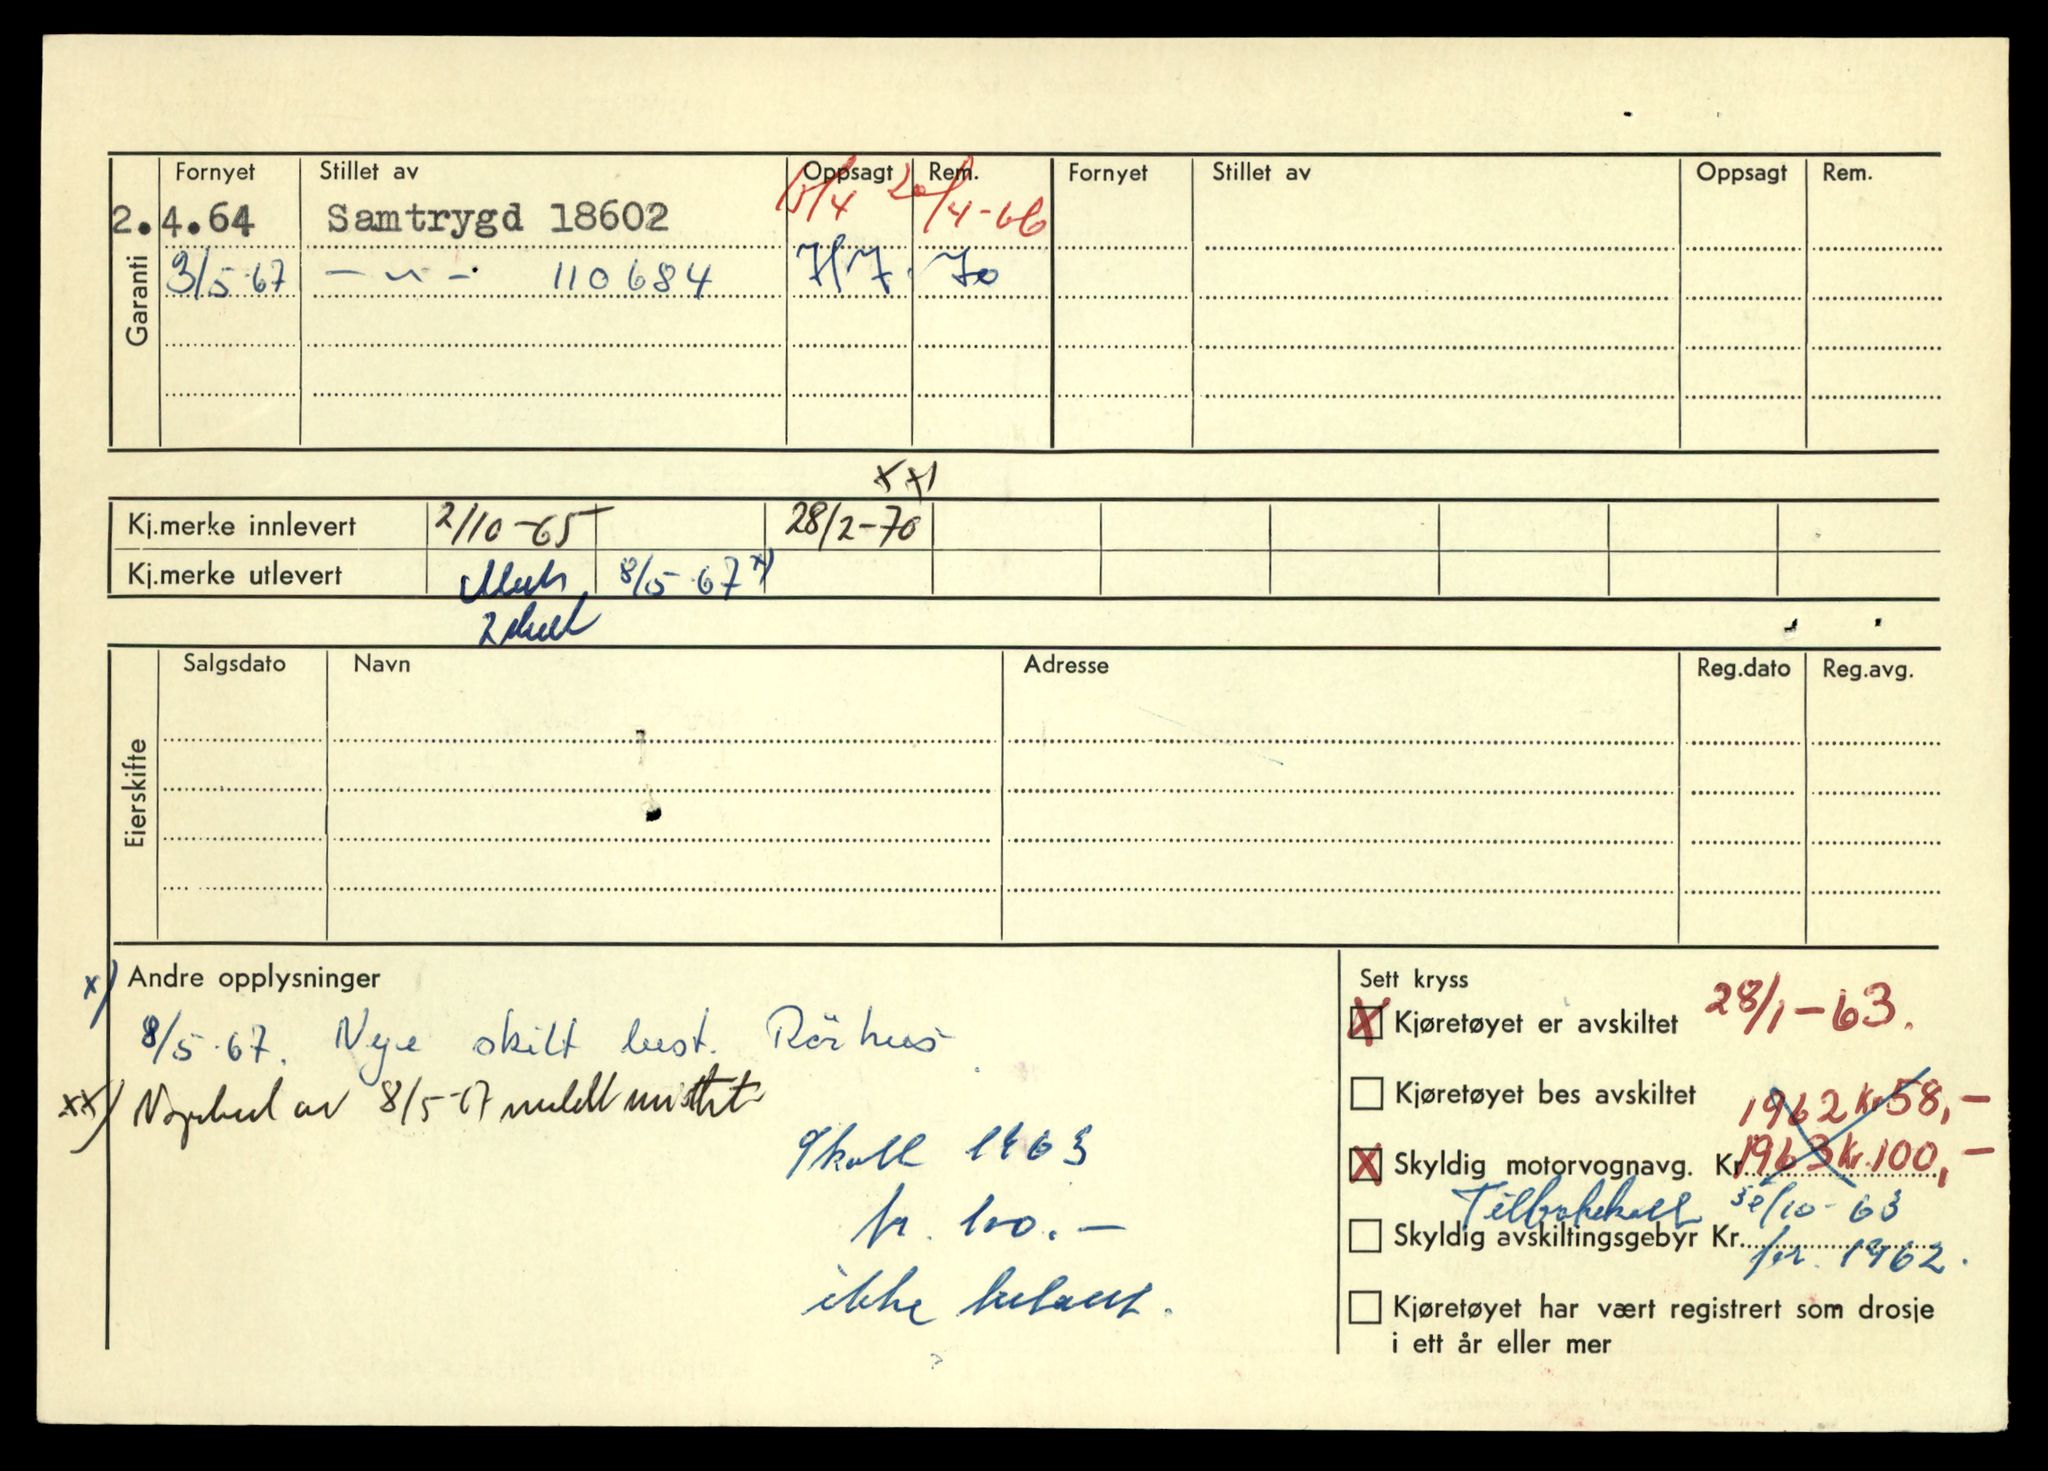 Garanti
Fornyet Stillet av Oppsagt Rem. Fornyet Stillet av Oppsagt Rem.
2.4.64 Samtrygd 18602 15/4 20/4-66
3/5-67 — " — 110684 7/7. 70
xx)
Kj.merke innlevert 2/10-65 28/2-70
Kj.merke utlevert 8/5-67 x)
Eierskifte
Salgsdato Navn Adresse Reg.dato Reg.avg.
x) Andre opplysninger
8/5-67. Nye skilt best. Rörhus
xx) av 8/5-67 meldt mistet
Skatt 1963
kr. 100.—
ikke betalt.
Sett kryss
X Kjøretøyet er avskiltet 28/1-63.
Kjøretøyet bes avskiltet
1962 Kr 58,—
X Skyldig motorvognavg. Kr. 1963 Kr. 100,—
Tilbakekalt 30/10-63
Skyldig avskiltingsgebyr Kr.
for 1962.
Kjøretøyet har vært registrert som drosje
i ett år eller mer